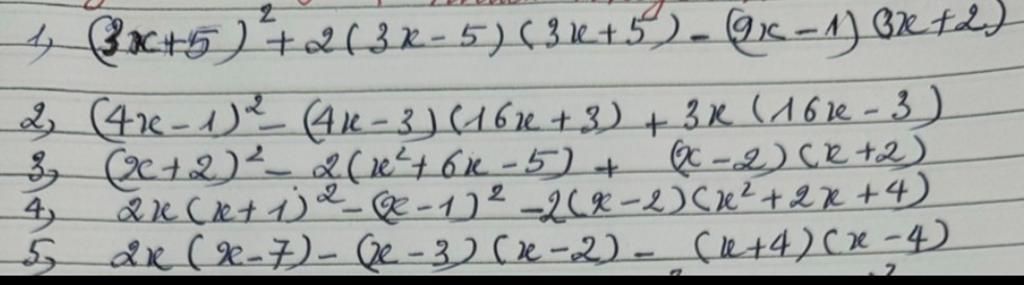 1, (3x+5)² + 2(3x-5)(3x+5) - (9x-1)(3x+2)
2, (4x-1)² - (4x-3)(16x+3) + 3x(16x-3)
3, (x+2)² - 2(x²+6x-5) + (x-2)(x+2)
4, 2x(x+1)² - (x-1)² - 2(x-2)(x²+2x+4)
5, 2x(x-7) - (x-3)(x-2) - (x+4)(x-4)